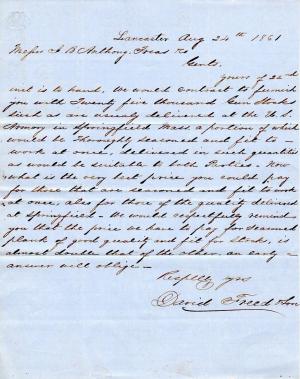 Lancaster Aug 24th 1861
Messrs A B Anthony, Treas &c
Gents.
yours of 22d
inst is to hand, We would contract to furnish
you with Twenty five thousand Gun Stocks
such as are usually delivered at the U.S.
Armory in Springfield Mass a portion of which
would be Thoroughly seasoned and fit to
work at once, delivered in such quantities
as would be suitable to both Parties. Now
what is the very best price you could pay
for those that are seasoned and fit to work
at once, also for those of the quality delivered
at Springfield - We would respectfully remind
you that the price we have to pay for seasoned
plank of good quality and fit for Stocks, is
almost double that of the other, an early
answer will oblige -
Respctly yrs
David Freed & Son